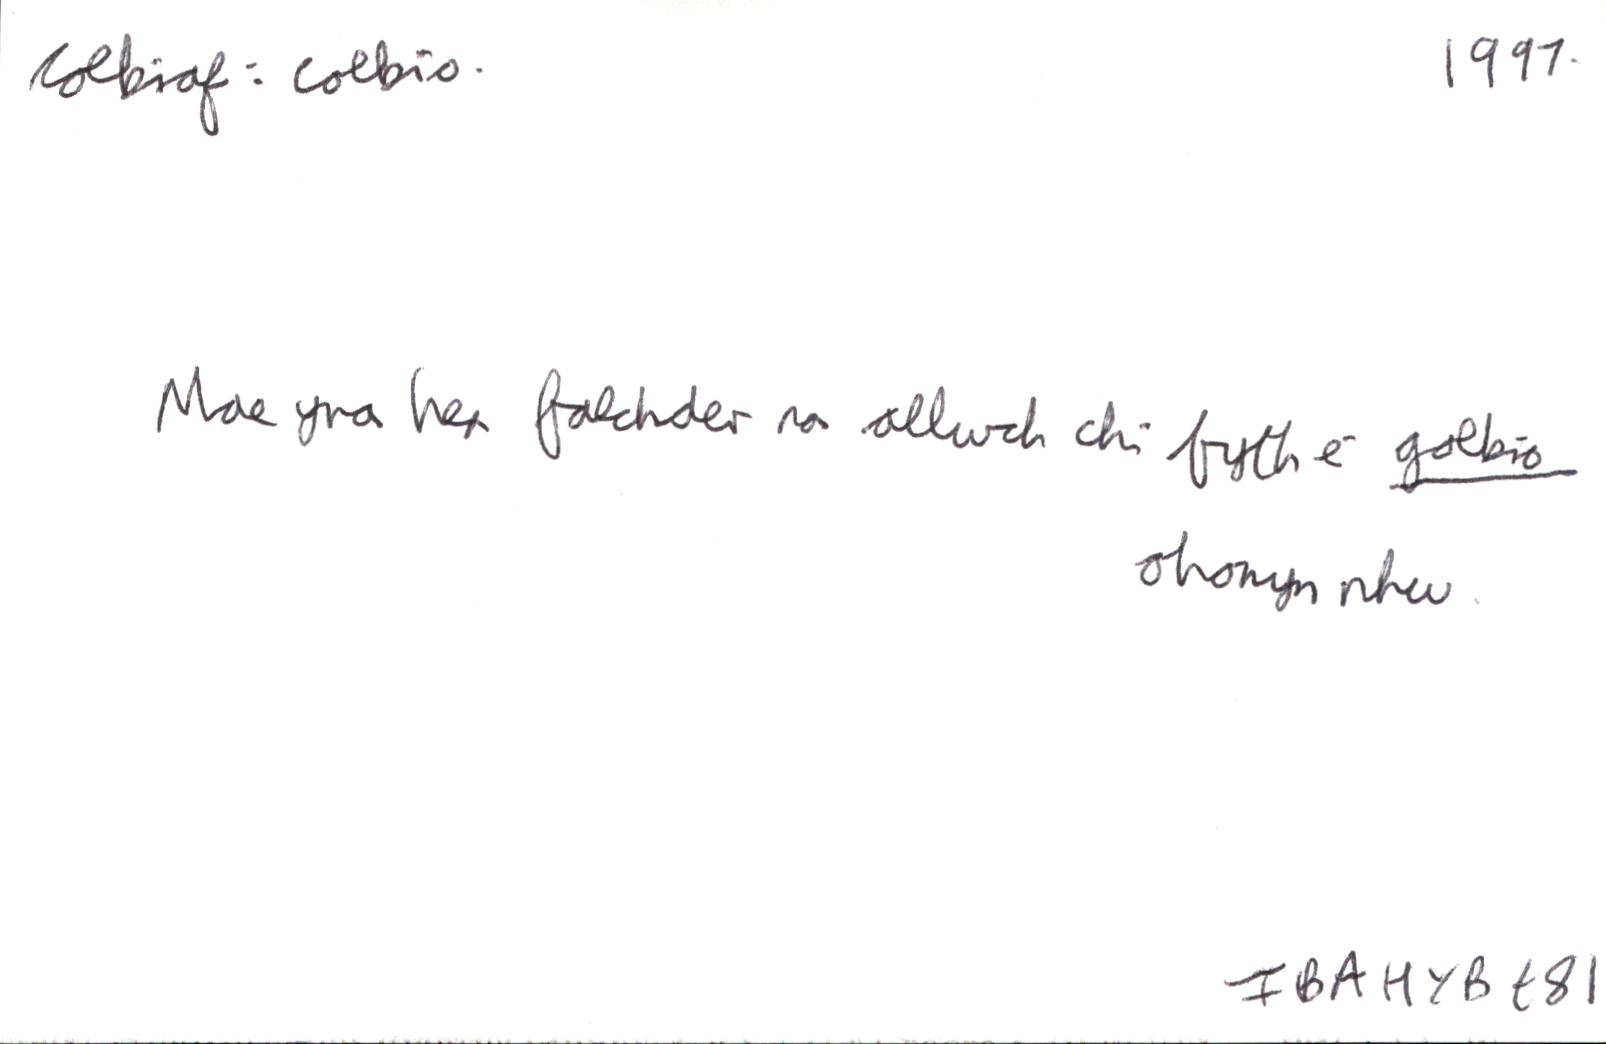 colbiaf: colbio. 1997.
Mae yna hen falchder na allwch chi fyth ei golbio
ohonyn nhw.
IBAHYB t81